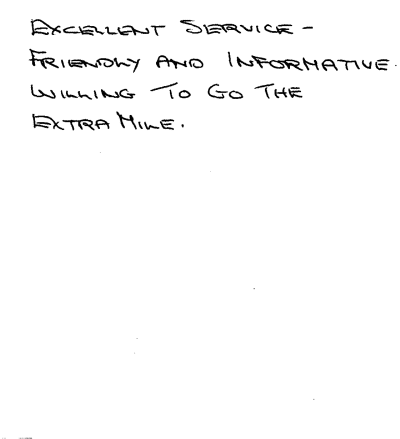 EXCELLENT SERVICE -
FRIENDLY AND INFORMATIVE.
WILLING TO GO THE
EXTRA MILE.